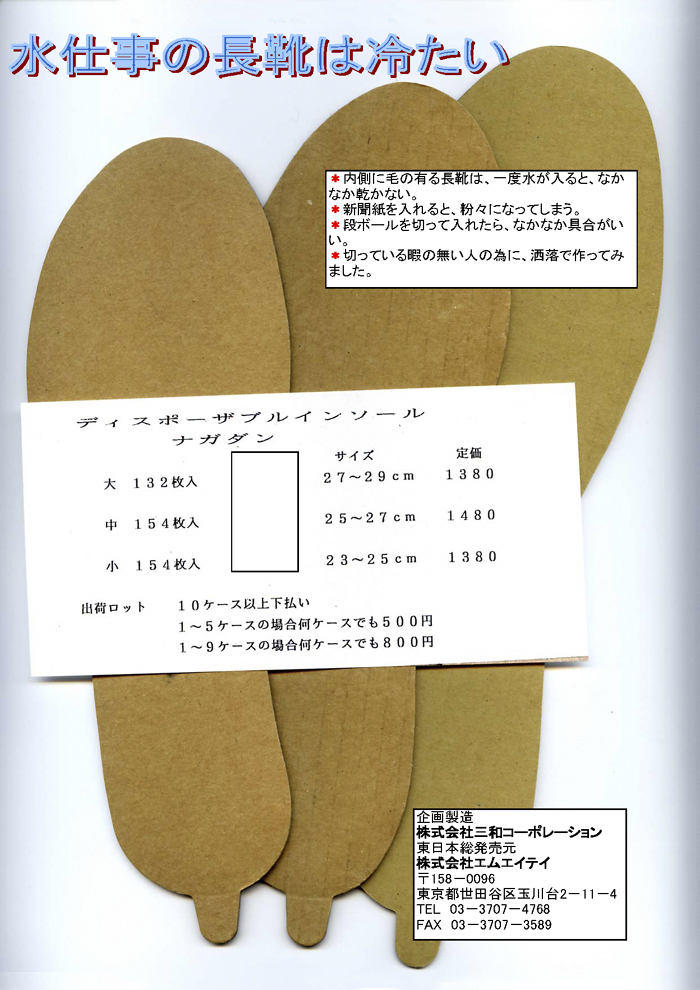 水仕事の長靴は冷たい
＊内側に毛の有る長靴は、一度水が入ると、なか
なか乾かない。
＊新聞紙を入れると、粉々になってしまう。
＊段ボールを切って入れたら、なかなか具合がい
い。
＊切っている暇の無い人の為に、洒落で作ってみ
ました。
ディスポーザブルインソール
ナガダン
サイズ 定価
大 132枚入 27～29cm 1380
中 154枚入 25～27cm 1480
小 154枚入 23～25cm 1380
出荷ロット 10ケース以上下払い
1～5ケースの場合何ケースでも500円
1～9ケースの場合何ケースでも800円
企画製造
株式会社三和コーポレーション
東日本総発売元
株式会社エムエイテイ
〒158－0096
東京都世田谷区玉川台2－11－4
TEL 03－3707－4768
FAX 03－3707－3589